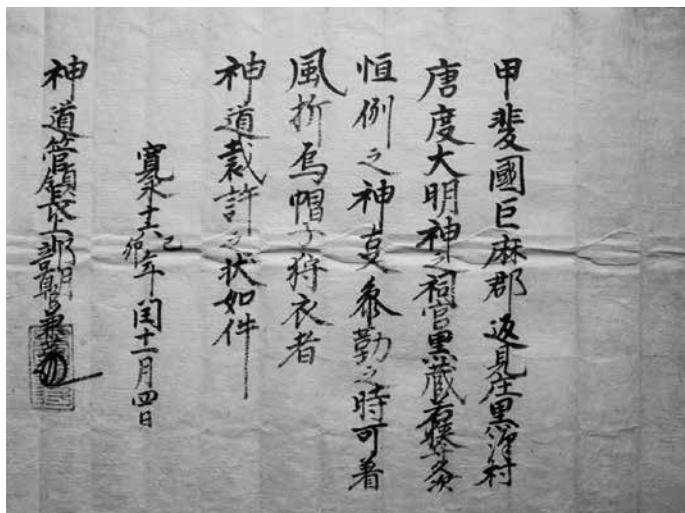 甲斐國巨麻郡返見庄黒澤村
唐度大明神之祠官黒蔵右
恒例之神事参勤之時可着
風折烏帽子狩衣者
神道裁許之状如件
寛永十六己卯年閏十一月四日
神道管領長上